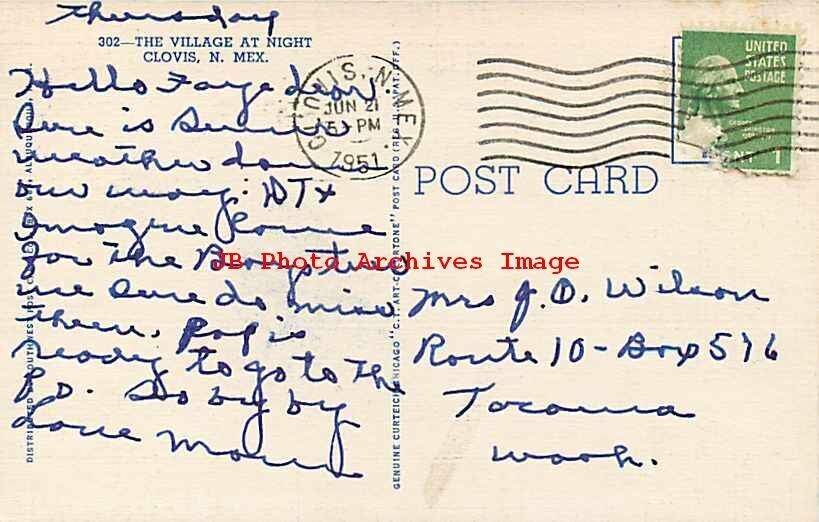 Thursday
302—THE VILLAGE AT NIGHT
CLOVIS, N. MEX.
Hello Faye dear.
Sure is Summer
weather down
our way: DT &
Imogene Came
for The Boys &
we sure do miss
them. Pop is
ready to go to The
P.O. So by by
Love Mom
CLOVIS, N. MEX.
JUN 21
5 PM
1951
UNITED
STATES
POSTAGE
CENT 1
POST CARD
JB Photo Archives Image
Mrs J. D. Wilson
Route 10 - Box 576
Tacoma
Wash.
GENUINE CURTEICH-CHICAGO "C.T. ART-COLORTONE" POST CARD (REG. U.S. PAT. OFF.)
DISTRIBUTED SOUTHWEST POST ALBUQUERQUE